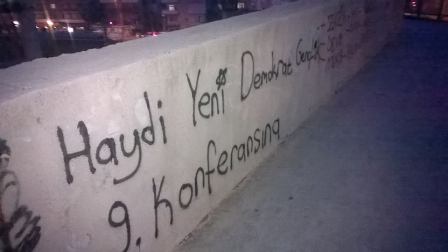 Haydi Yeni Demokrat Gençlik
9. Konferansına